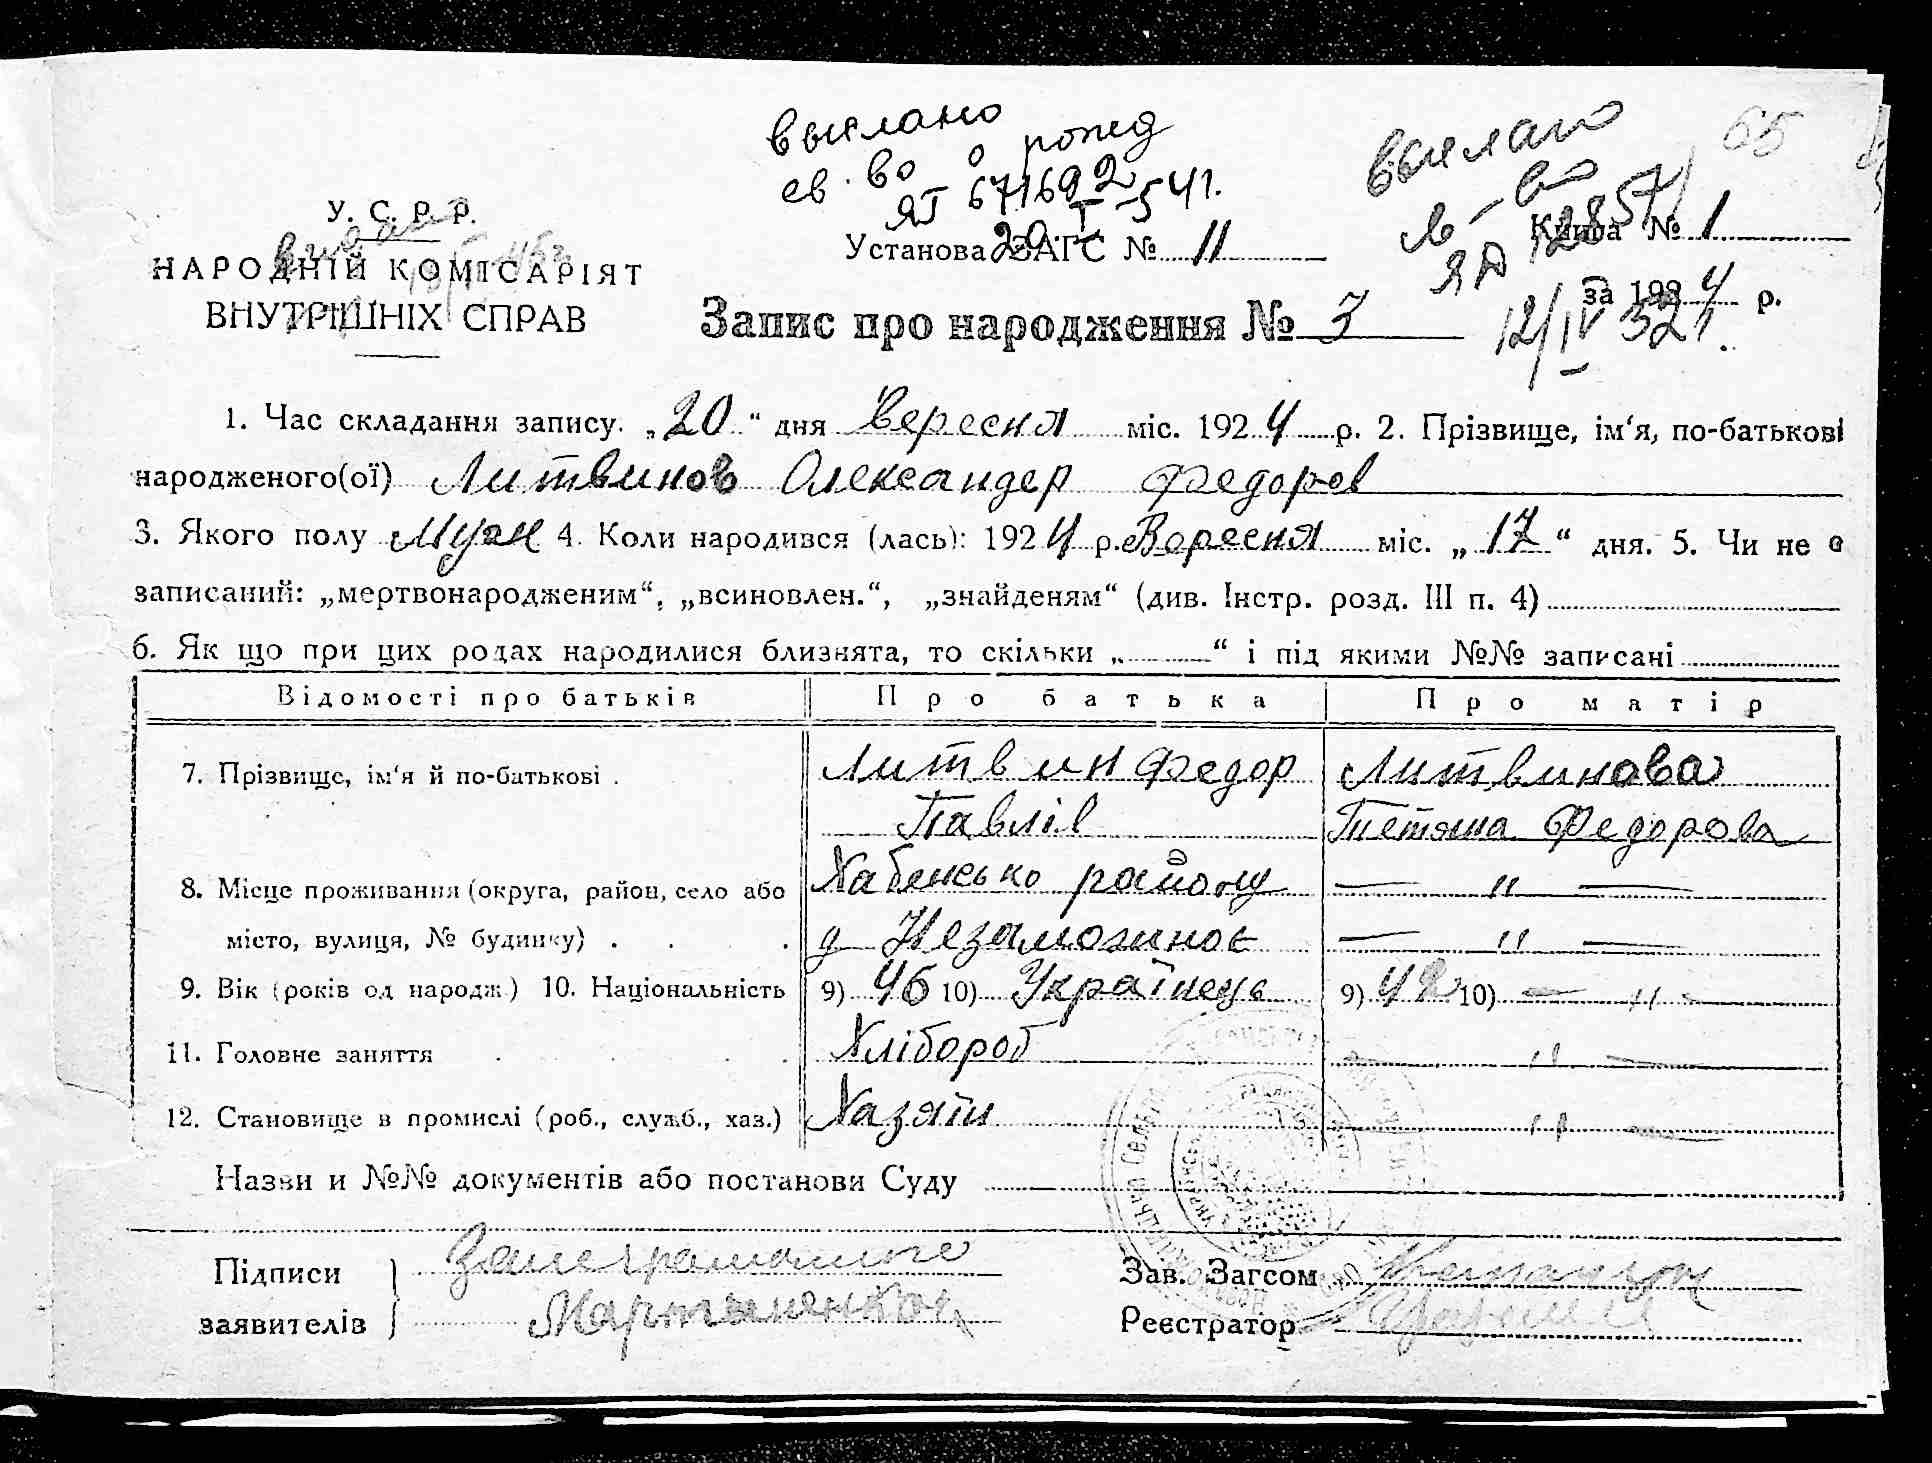 выслано
св. во о рожд
ЯГ 671692
20. I 541.
выслано
св-во
ЯД 12857
12/IV 52г.
65
У. С. Р. Р.
НАРОДНІЙ КОМІСАРІЯТ
ВНУТРІШНІХ СПРАВ
Установа ЗАГС № 11
Книга № 1
за 1924 р.
Запис про народження № 3
1. Час складання запису. „20“ дня Вересня міс. 1924 р. 2. Прізвище, ім‘я, по-батькові
народженого(ої) Литвинов Олександер Федоров
3. Якого полу Муж 4. Коли народився (лась): 1924 р. Вересня міс. „17“ дня. 5. Чи не є
записаний: „мертвонародженим“, „всиновлен.“, „знайденям“ (див. Інстр. розд. III п. 4)
6. Як що при цих родах народилися близнята, то скільки „ “ і під якими №№ записані
Відомості про батьків Про батька Про матір
7. Прізвище, ім‘я й по-батькові . Литвин Федор Литвинова
Павлів Тетяна Федорова
8. Місце проживання (округа, район, село або Хабенсько району — " —
місто, вулиця, № будинку) . . . . д Незаможное — " —
9. Вік (років од народж.) 10. Національність 9) 46 10) Українець 9) 42 10) — " —
11. Головне заняття . . . . Хлібороб — " —
12. Становище в промислі (роб., служб., хаз.) Хазяїн " —
Назви и №№ документів або постанови Суду
Підписи
заявителів
Зав. Загсом
Реєстратор